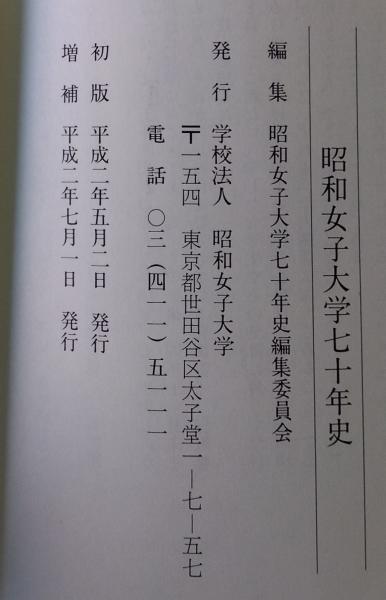 昭和女子大学七十年史
編集 昭和女子大学七十年史編集委員会
発行 学校法人 昭和女子大学
〒一五四 東京都世田谷区太子堂一―七―五七
電話 〇三(四一一)五一一一
初版 平成二年五月二日 発行
増補 平成二年七月一日 発行